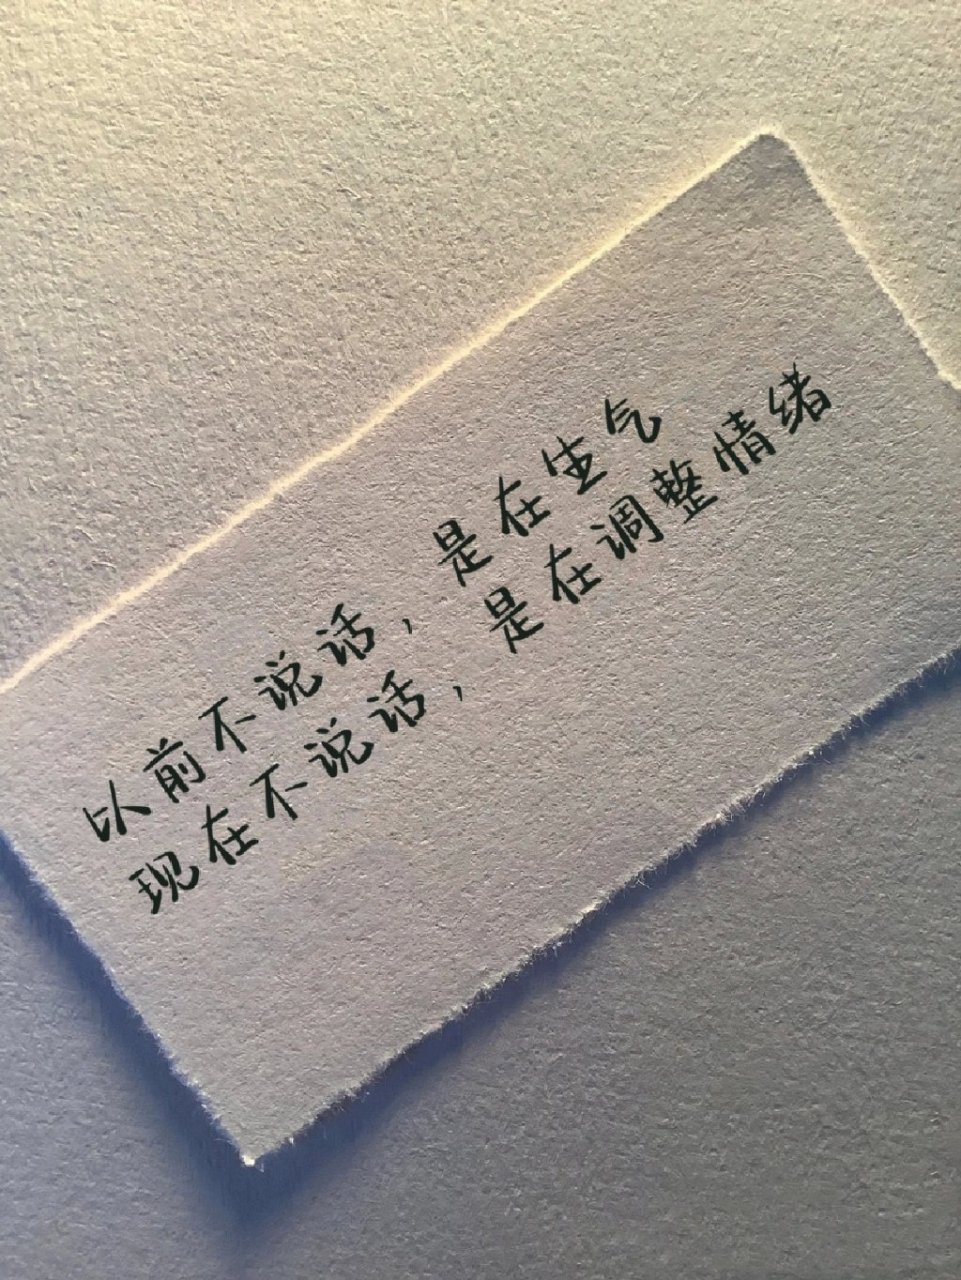 以前不说话，是在生气
现在不说话，是在调整情绪